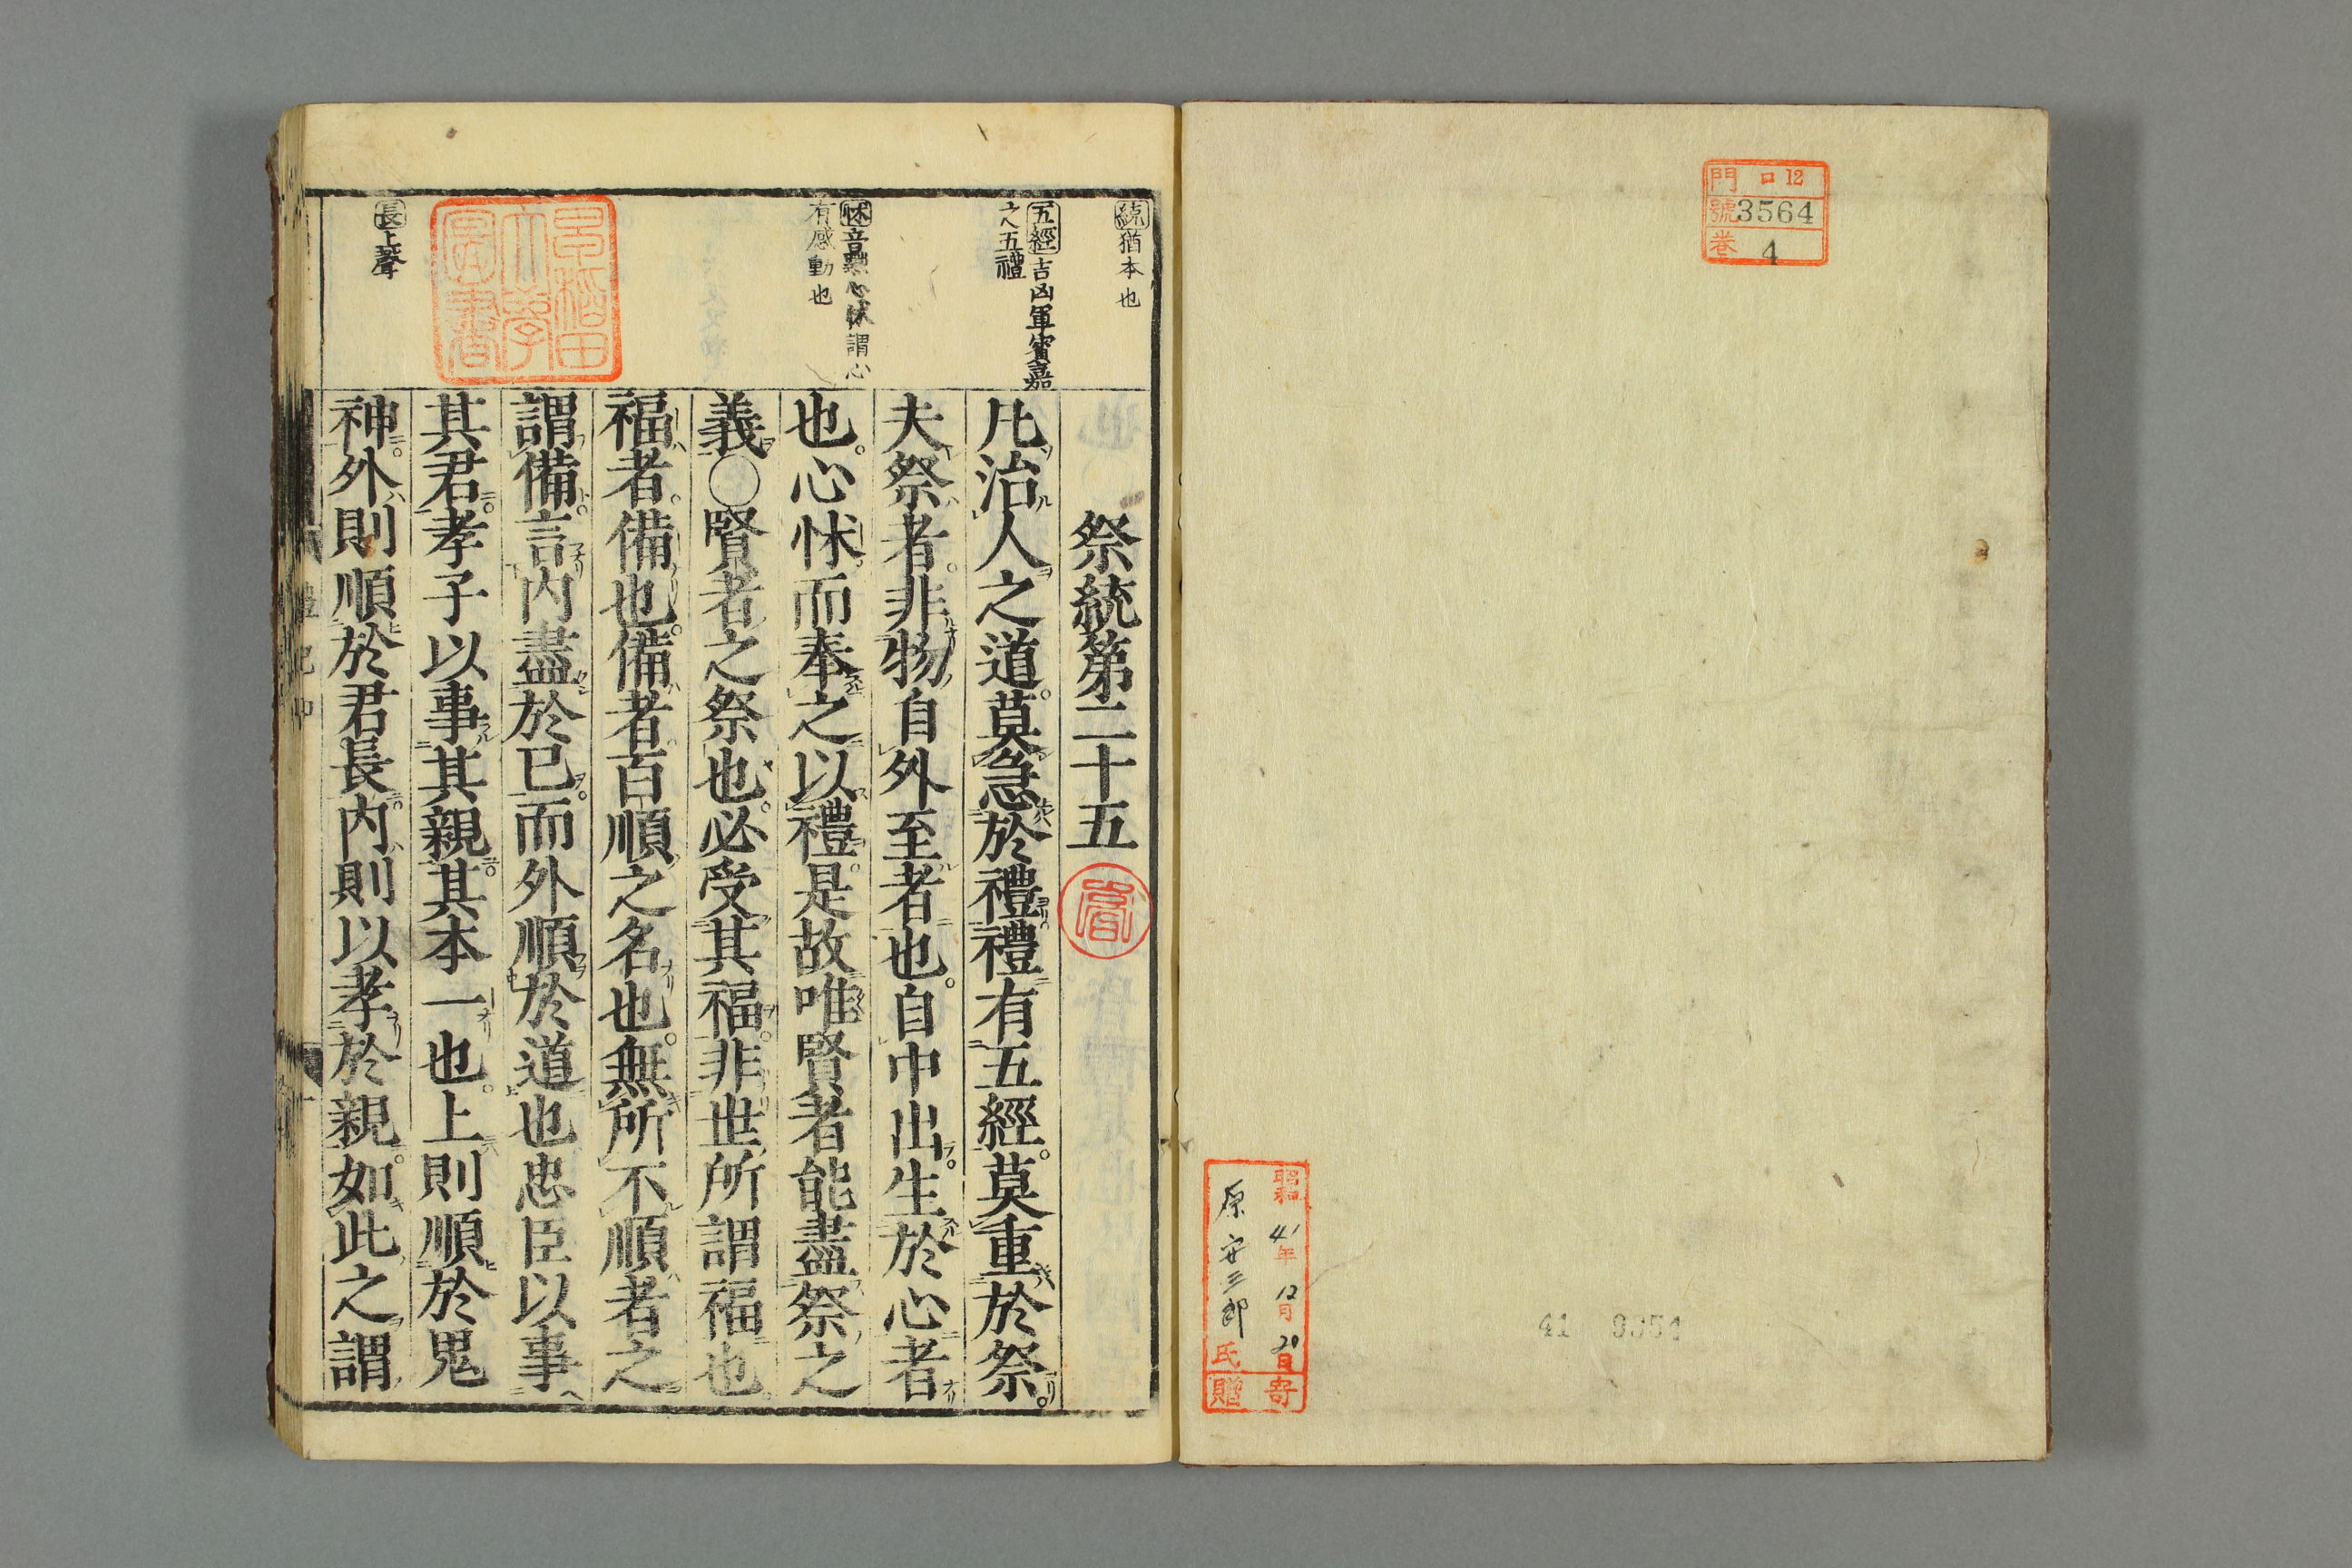 門 ロ 12
號 3564
卷 4
昭和 41年 12月 20日 寄
原 安三郎 氏 贈
統猶本也
五經吉凶軍賓嘉
之五禮
怵音黜心怵謂心
有感動也
長上聲
早稲田
大學
圖書
祭統第二十五
凡治人之道。莫急於禮禮有五經。莫重於祭。
夫祭者。非物自外至者也。自中出。生於心者
也。心怵而奉之以禮。是故唯賢者能盡祭之
義○賢者之祭也。必受其福。非世所謂福也
福者。備也。備者百順之名也。無所不順者之
謂備。言內盡於已。而外順於道也忠臣以事
其君。孝子以事其親。其本一也。上則順於鬼
神。外則順於君長。內則以孝於親。如此之謂